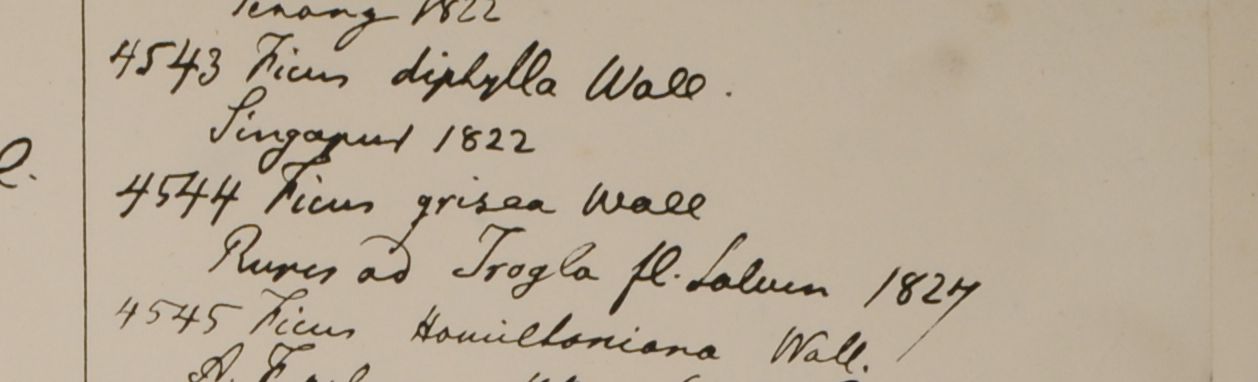 Penang 1822
4543 Ficus diphylla Wall.
Singapur 1822
4544 Ficus grisea Wall
Rupes ad Trogla fl. Saluen 1827
4545 Ficus Hamiltoniana Wall.